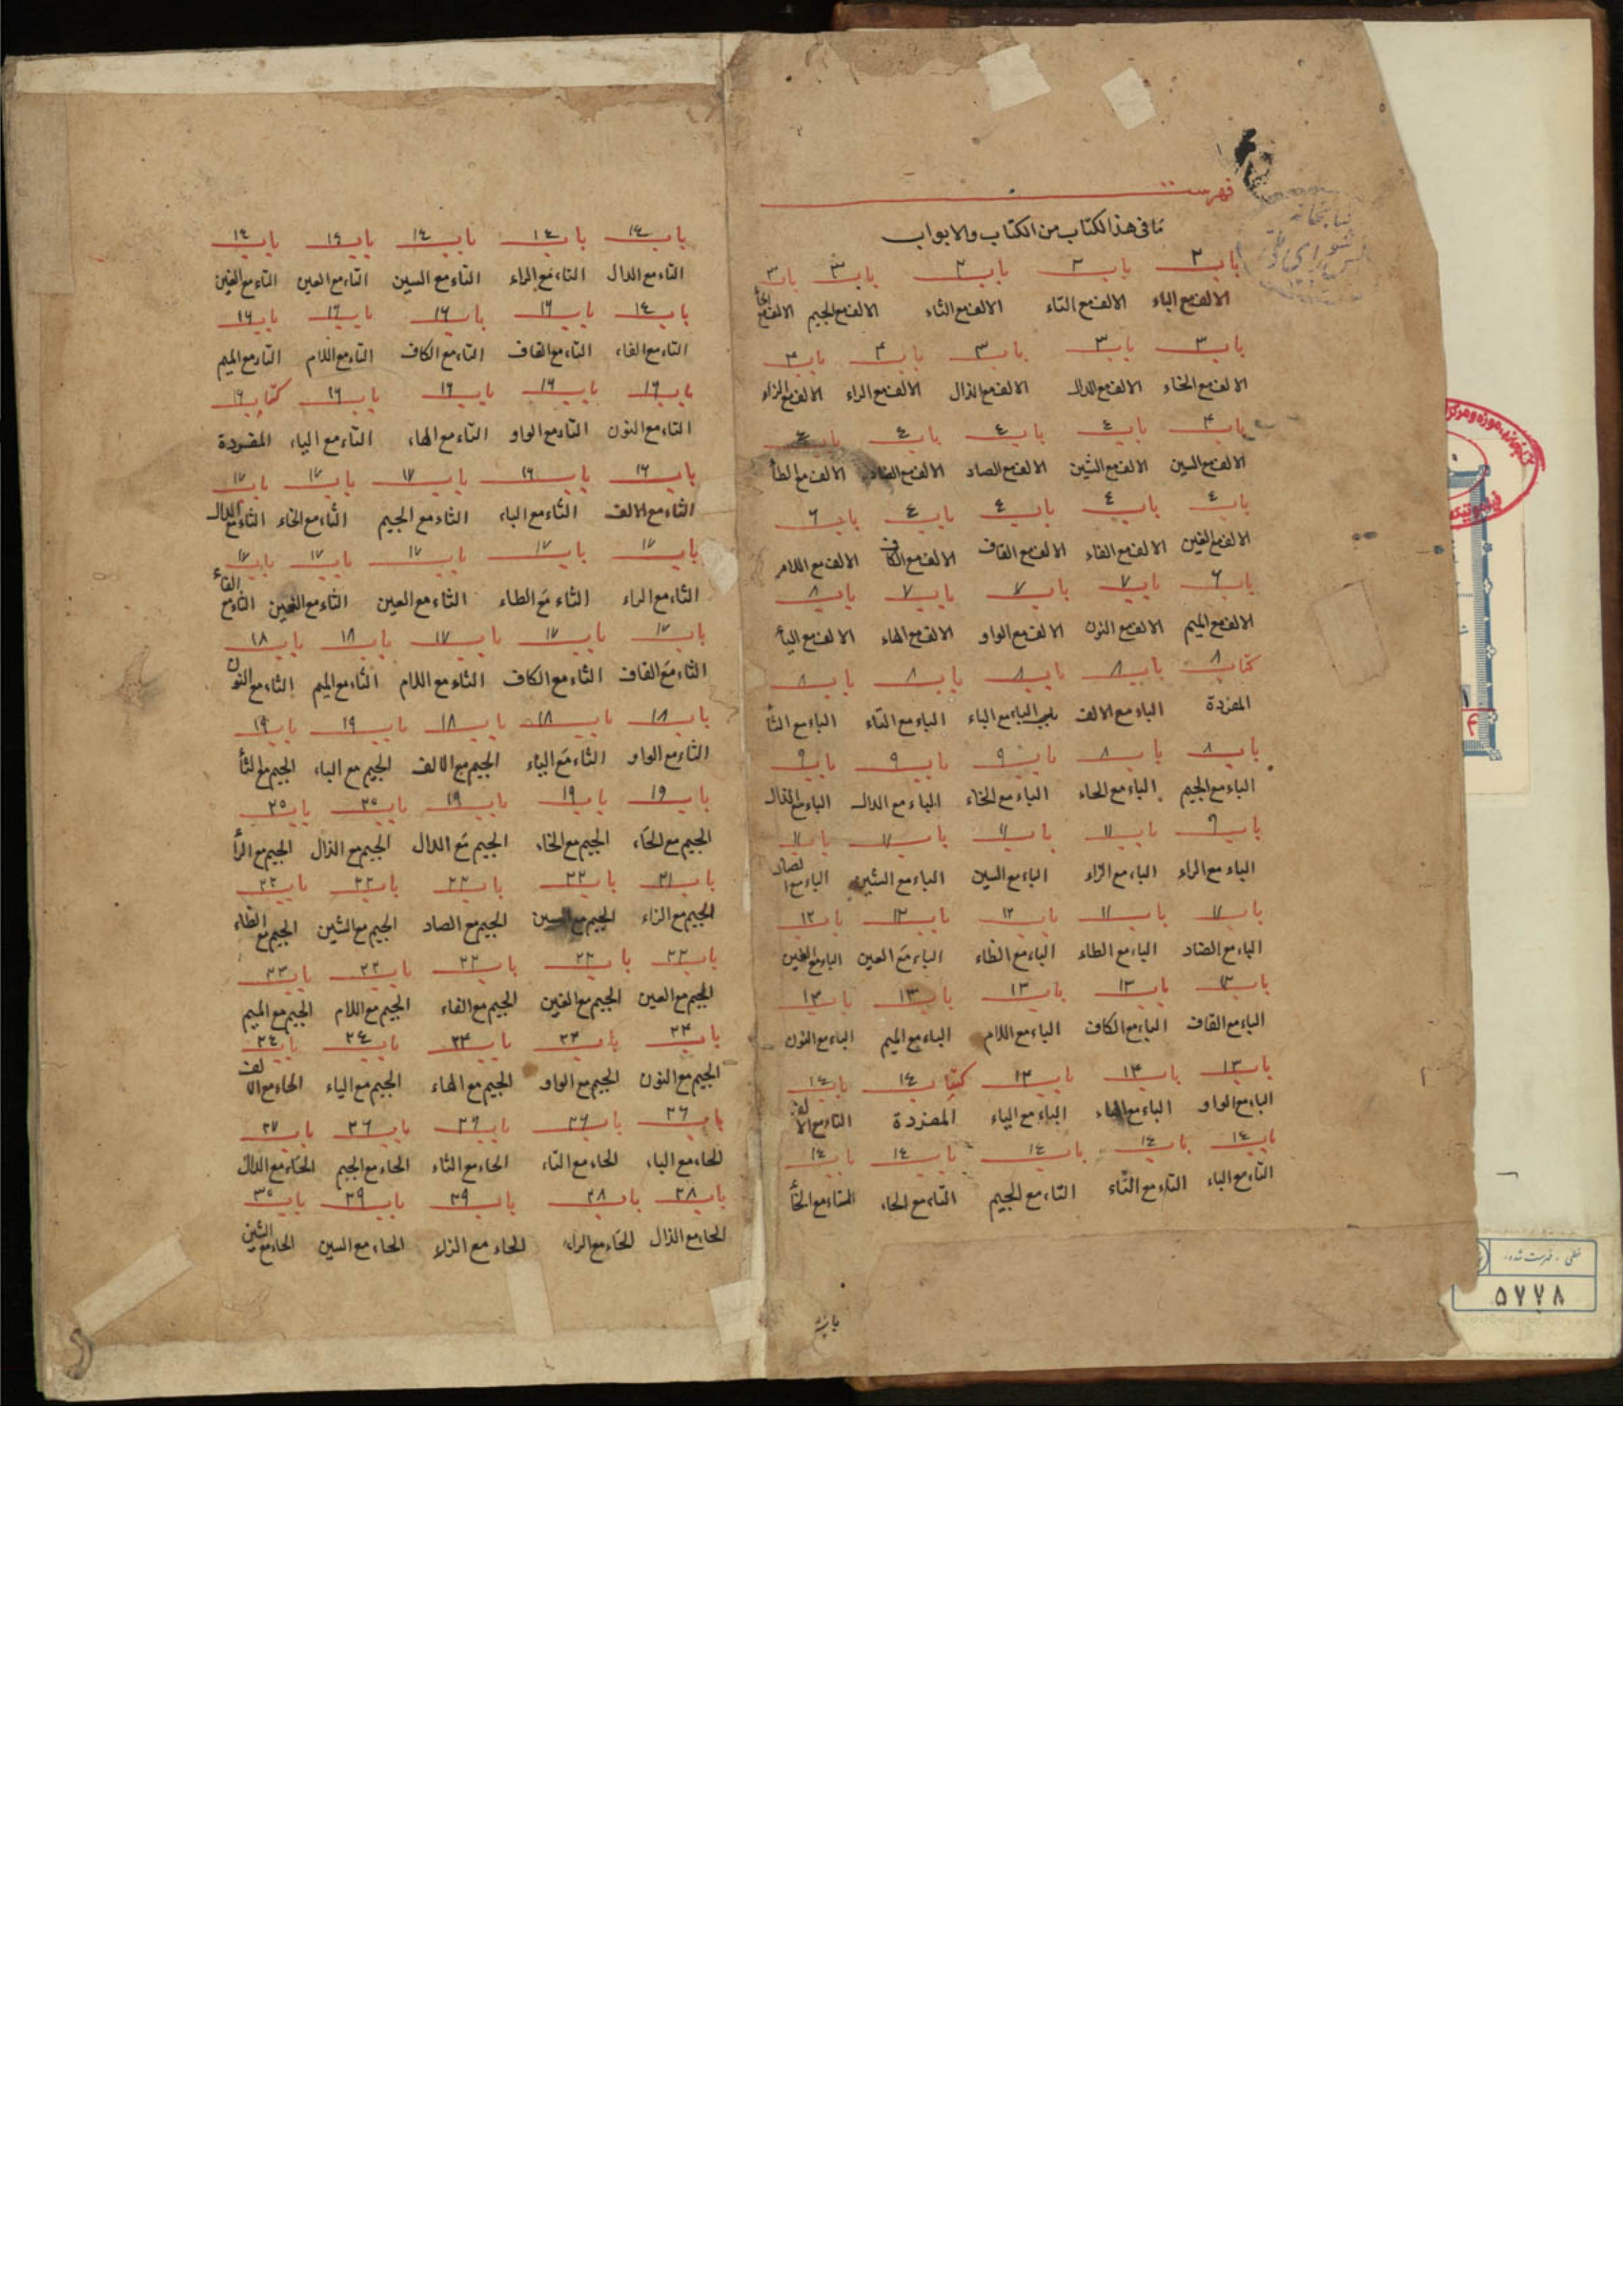 فهرست
ما فى هذا الكتاب من الكتاب والابواب
باب ٢ باب ٢ باب ٢ باب ٣ باب ٣
الالف مع الباء الالف مع التاء الالف مع الثاء الالف مع الجيم الالف مع الحأ
باب ٣ باب ٣ باب ٣ باب ٣ باب ٣
الالف مع الخاء الالف مع الدال الالف مع الذال الالف مع الراء الالف مع الزاء
باب ٣ باب ٤ باب ٤ باب ٤ باب ٤
الالف مع السين الالف مع الشين الالف مع الصاد الالف مع الضاد الالف مع الطأ
باب ٤ باب ٤ باب ٤ باب ٤ باب ٦
الالف مع الغين الالف مع الفاء الالف مع القاف الالف مع الكاف الالف مع اللام
باب ٦ باب ٧ باب ٧ باب ٧ باب ٨
الالف مع الميم الالف مع النون الالف مع الواو الالف مع الهاء الالف مع اليأ
كتاب ٨ باب ٨ باب ٨ باب ٨ باب ٨
المفردة الباء مع الالف الباء مع الباء الباء مع التاء الباء مع الثأ
باب ٨ باب ٨ باب ٩ باب ٩ باب ٩
الباء مع الجيم الباء مع الحاء الباء مع الخاء الباء مع الدال الباء مع الذال
باب ٩ باب ١١ باب ١١ باب ١١ باب ١١
الباء مع الراء الباء مع الزاء الباء مع السين الباء مع الشين الباء مع الصاد
باب ١١ باب ١١ باب ١٢ باب ١٢ باب ١٢
الباء مع الضاد الباء مع الطاء الباء مع الظاء الباء مع العين الباء مع الغين
باب ١٣ باب ١٣ باب ١٣ باب ١٣ باب ١٣
الباء مع القاف الباء مع الكاف الباء مع اللام الباء مع الميم الباء مع النون
باب ١٣ باب ١٣ باب ١٣ كتاب ١٤ باب ١٤
الباء مع الواو الباء مع الهاء الباء مع الياء المفردة التاء مع الالف
باب ١٤ باب ١٤ باب ١٤ باب ١٤ باب ١٤
التاء مع الباء التاء مع الثاء التاء مع الجيم التاء مع الحاء التاء مع الخأ
باب ١٤ باب ١٤ باب ١٤ باب ١٤ باب ١٤
التاء مع الدال التاء مع الراء التاء مع السين التاء مع العين التاء مع الغين
باب ١٤ باب ١٦ باب ١٦ باب ١٦ باب ١٦
التاء مع الفاء التاء مع القاف التاء مع الكاف التاء مع اللام التاء مع الميم
باب ١٦ باب ١٦ باب ١٦ باب ١٦ كتاب ١٦
التاء مع النون التاء مع الواو التاء مع الهاء التاء مع الياء المفردة
باب ١٦ باب ١٦ باب ١٧ باب ١٧ باب ١٧
الثاء مع الالف الثاء مع الباء الثاء مع الجيم الثاء مع الخاء الثاء مع الدال
باب ١٧ باب ١٧ باب ١٧ باب ١٧ باب ١٧
الثاء مع الراء الثاء مع الطاء الثاء مع العين الثاء مع الغين الثاء مع الفاء
باب ١٧ باب ١٧ باب ١٧ باب ١٨ باب ١٨
الثاء مع القاف الثاء مع الكاف الثاء مع اللام الثاء مع الميم الثاء مع النون
باب ١٨ باب ١٨ باب ١٨ باب ١٩ باب ١٩
الثاء مع الواو الثاء مع الياء الجيم مع الالف الجيم مع الباء الجيم مع الثأ
باب ١٩ باب ١٩ باب ١٩ باب ٢٥ باب ٢٥
الجيم مع الحاء الجيم مع الخاء الجيم مع الدال الجيم مع الذال الجيم مع الرأ
باب ٢١ باب ٢٢ باب ٢٢ باب ٢٢ باب ٢٢
الجيم مع الزاء الجيم مع السين الجيم مع الصاد الجيم مع الشين الجيم مع الظاء
باب ٢٢ باب ٢٢ باب ٢٢ باب ٢٢ باب ٢٣
الجيم مع العين الجيم مع الغين الجيم مع الفاء الجيم مع اللام الجيم مع الميم
باب ٢٣ باب ٢٣ باب ٢٣ باب ٢٤ باب ٢٤
الجيم مع النون الجيم مع الواو الجيم مع الهاء الجيم مع الياء الحاء مع الالف
باب ٢٦ باب ٢٦ باب ٢٦ باب ٢٦ باب ٢٧
الحاء مع الباء الحاء مع التاء الحاء مع الثاء الحاء مع الجيم الحاء مع الدال
باب ٢٨ باب ٢٨ باب ٢٩ باب ٢٩ باب ٣٥
الحاء مع الذال الحاء مع الراء الحاء مع الزاء الحاء مع السين الحاء مع الشين
خطى . فهرست شده .
٥٧٧٨